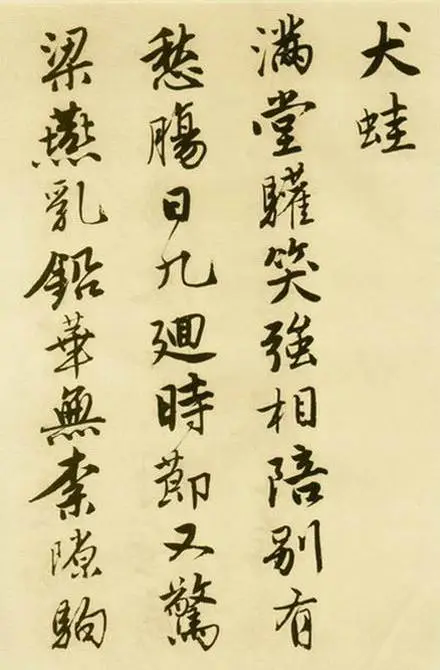 犬蛙
滿堂驩笑強相陪別有
愁膓日九廻時莭又驚
梁燕乳鉛華無柰隙駒